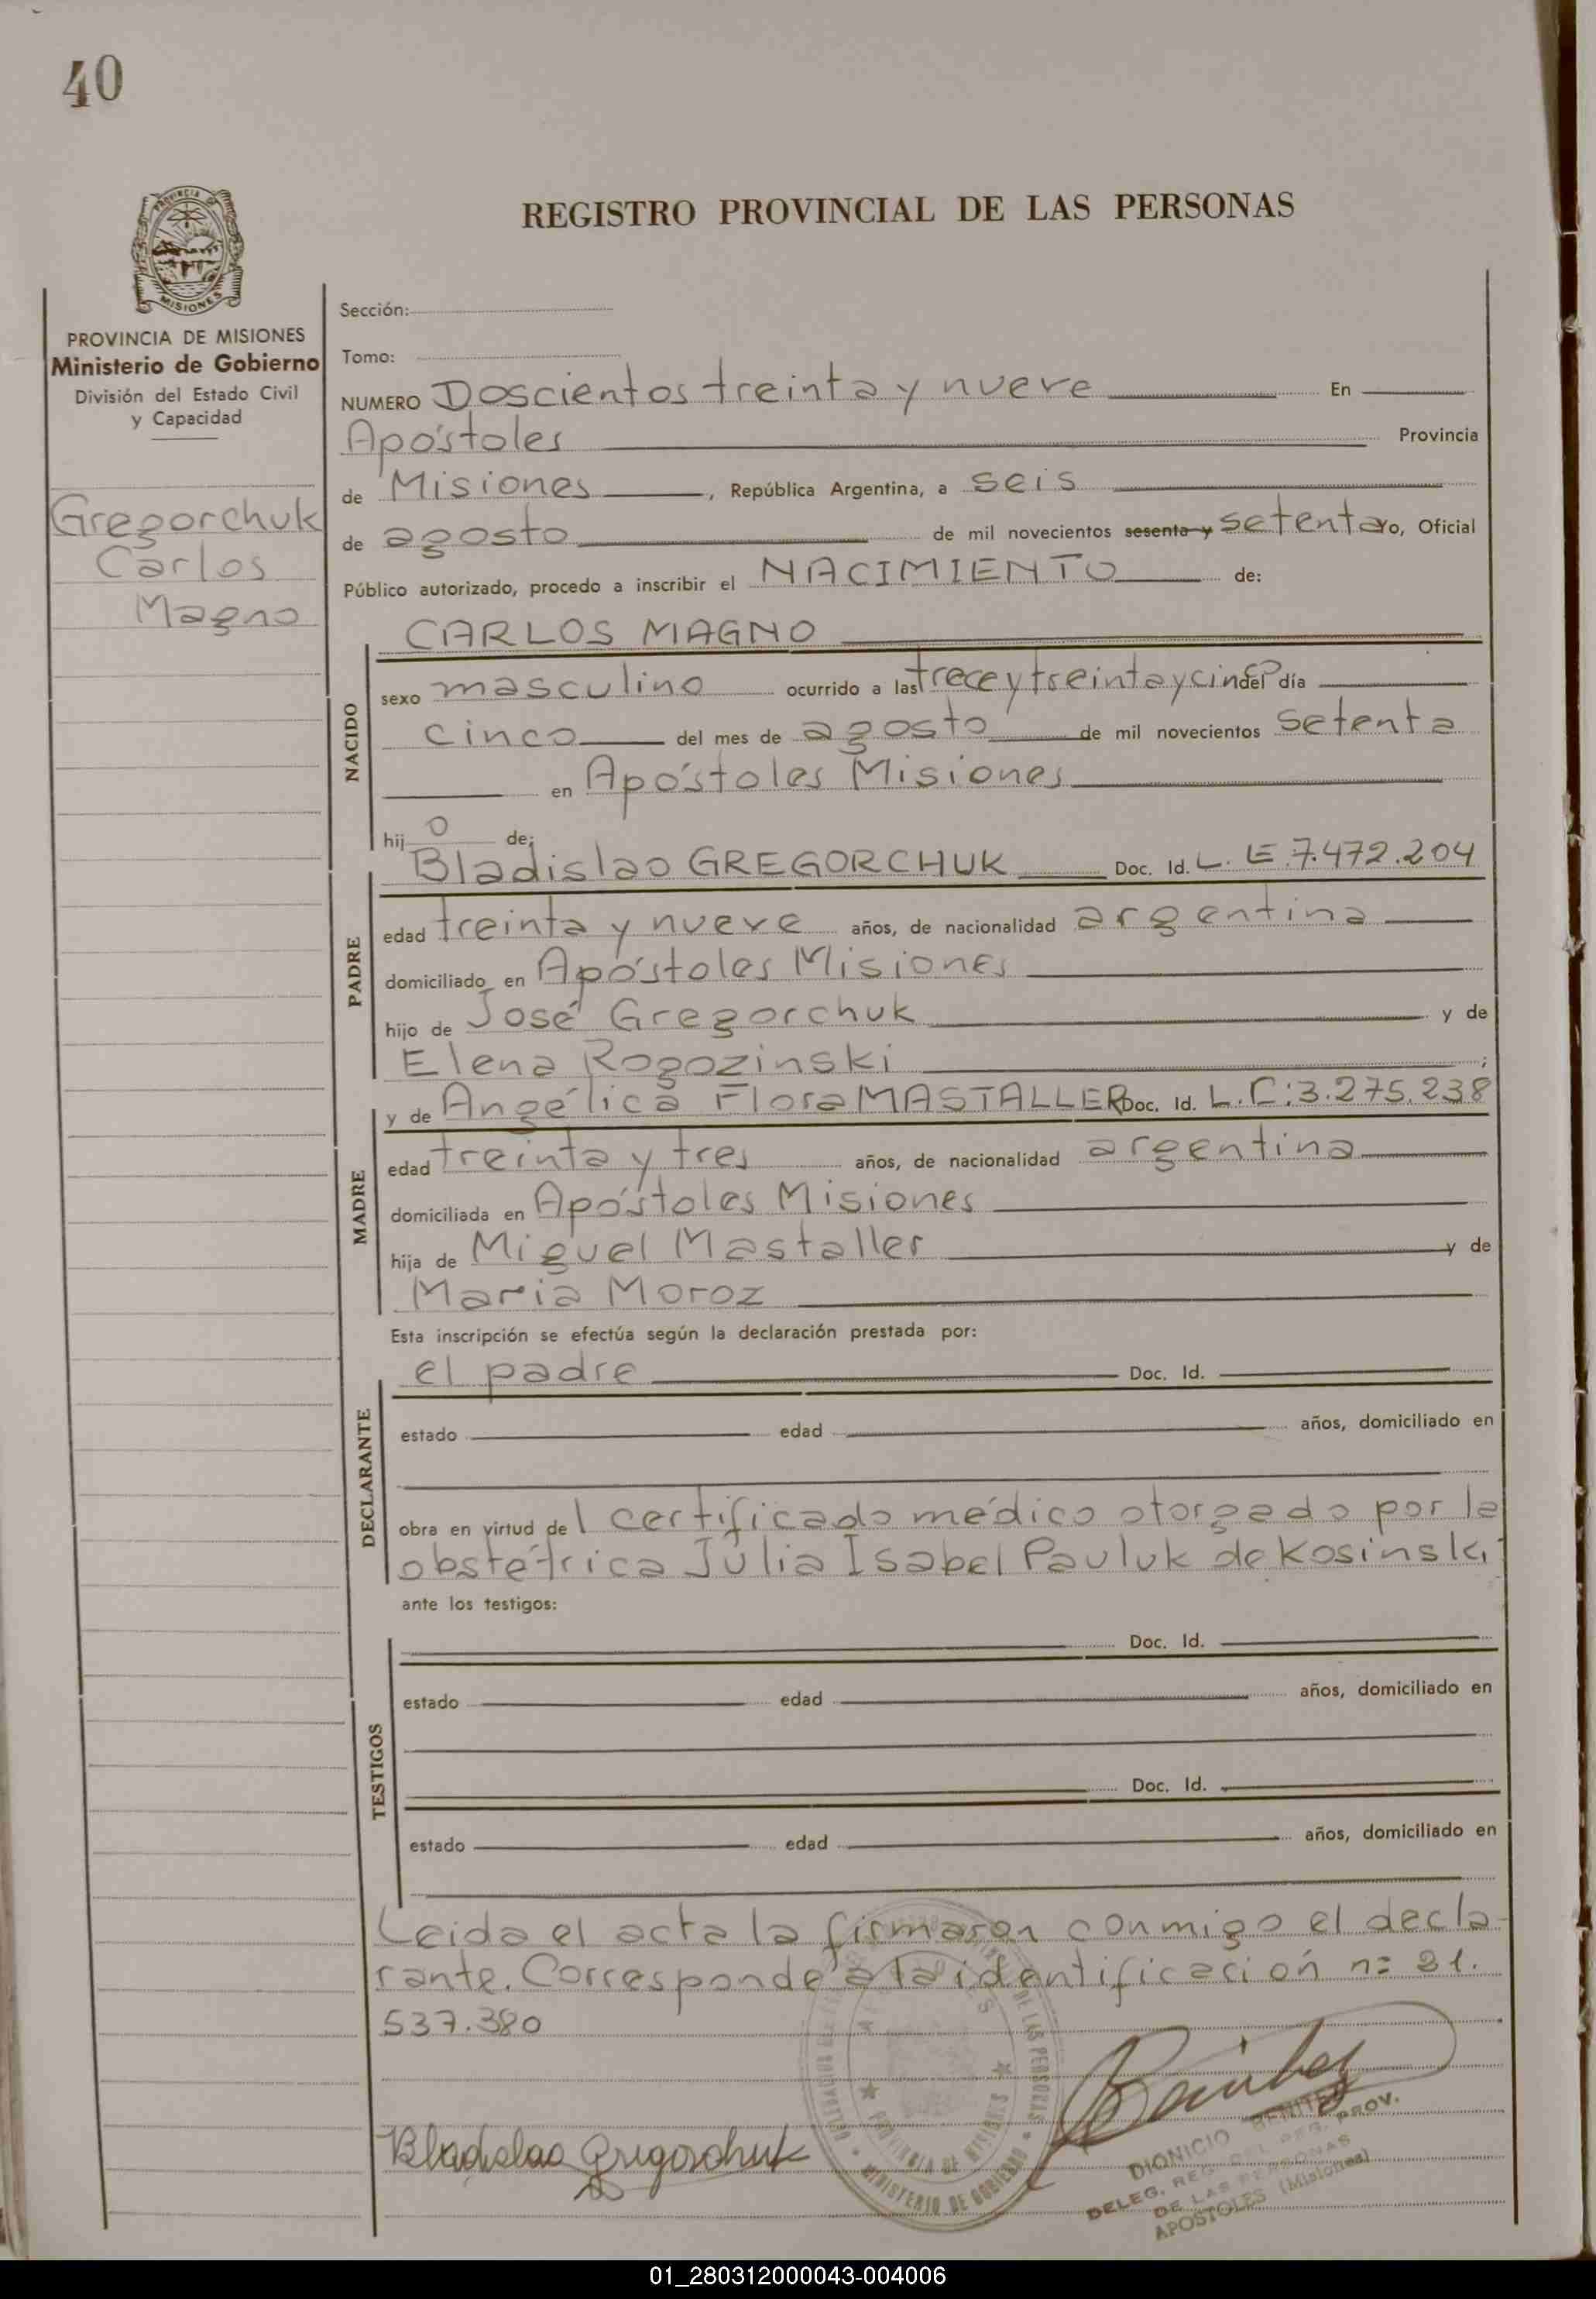 40
PROVINCIA
MISIONES
REGISTRO PROVINCIAL DE LAS PERSONAS
PROVINCIA DE MISIONES
Ministerio de Gobierno
División del Estado Civil
y Capacidad
Gregorchuk
Carlos
Magno
Sección:
Tomo:
NUMERO Doscientos treinta y nueve En
Apóstoles Provincia
de Misiones, República Argentina, a seis
de agosto de mil novecientos sesenta y setenta yo, Oficial
Público autorizado, procedo a inscribir el NACIMIENTO de:
NACIDO
CARLOS MAGNO
sexo masculino ocurrido a las trece y treinta y cinco del día
cinco del mes de agosto de mil novecientos setenta
en Apóstoles Misiones
hijo de:
PADRE
Bladislao GREGORCHUK Doc. Id. L. E 7.472.204
edad treinta y nueve años, de nacionalidad argentina
domiciliado en Apóstoles Misiones
hijo de José Gregorchuk y de
Elena Rogozinski;
MADRE
y de Angélica Flora MASTALLER Doc. Id. L.C:3.275.238
edad treinta y tres años, de nacionalidad argentina
domiciliada en Apóstoles Misiones
hija de Miguel Mastaller y de
Maria Moroz
Esta inscripción se efectúa según la declaración prestada por:
DECLARANTE
el padre Doc. Id.
estado edad años, domiciliado en
obra en virtud del certificado médico otorgado por la
obstétrica Julia Isabel Pauluk de Kosinski
ante los testigos:
TESTIGOS
Doc. Id.
estado edad años, domiciliado en
Doc. Id.
estado edad años, domiciliado en
Leida el acta la firmaron conmigo el decla-
rante. Corresponde a la identificación nº 21.
537.380
Bladislao Gregorchuk
DE LAS PERSONAS
PROVINCIA DE MISIONES
MINISTERIO DE GOBIERNO
DIONICIO BENITEZ
DELEG. REG. DEL REG. PROV.
DE LAS PERSONAS
APOSTOLES (Misiones)
01_280312000043-004006